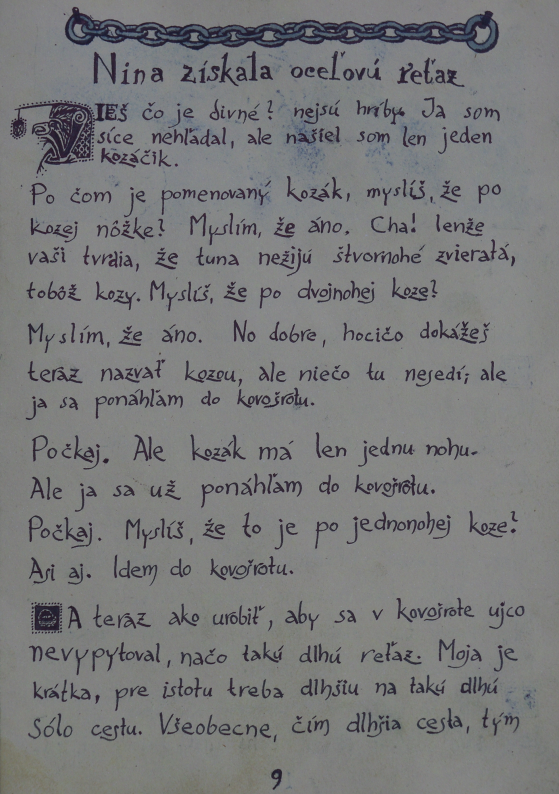 Nina získala oceľovú reťaz
VIEŠ čo je divné? nejsú hríby. Ja som
síce nehľadal, ale našiel som len jeden
kozáčik.
Po čom je pomenovaný kozák, myslíš, že po
kozej nôžke? Myslím, že áno. Cha! lenže
vaši tvrdia, že tuna nežijú štvornohé zvieratá,
tobôž kozy. Myslíš, že po dvojnohej koze?
Myslím, že áno. No dobre, hocičo dokážeš
teraz nazvať kozou, ale niečo tu nesedí; ale
ja sa ponáhľam do kovošrotu.
Počkaj. Ale kozák má len jednu nohu.
Ale ja sa už ponáhľam do kovošrotu.
Počkaj. Myslíš, že to je po jednonohej koze?
Asi aj. Idem do kovošrotu.
A teraz ako urobiť, aby sa v kovošrote ujco
nevypytoval, načo takú dlhú reťaz. Moja je
krátka, pre istotu treba dlhšiu na takú dlhú
sólo cestu. Všeobecne, čím dlhšia cesta, tým
9